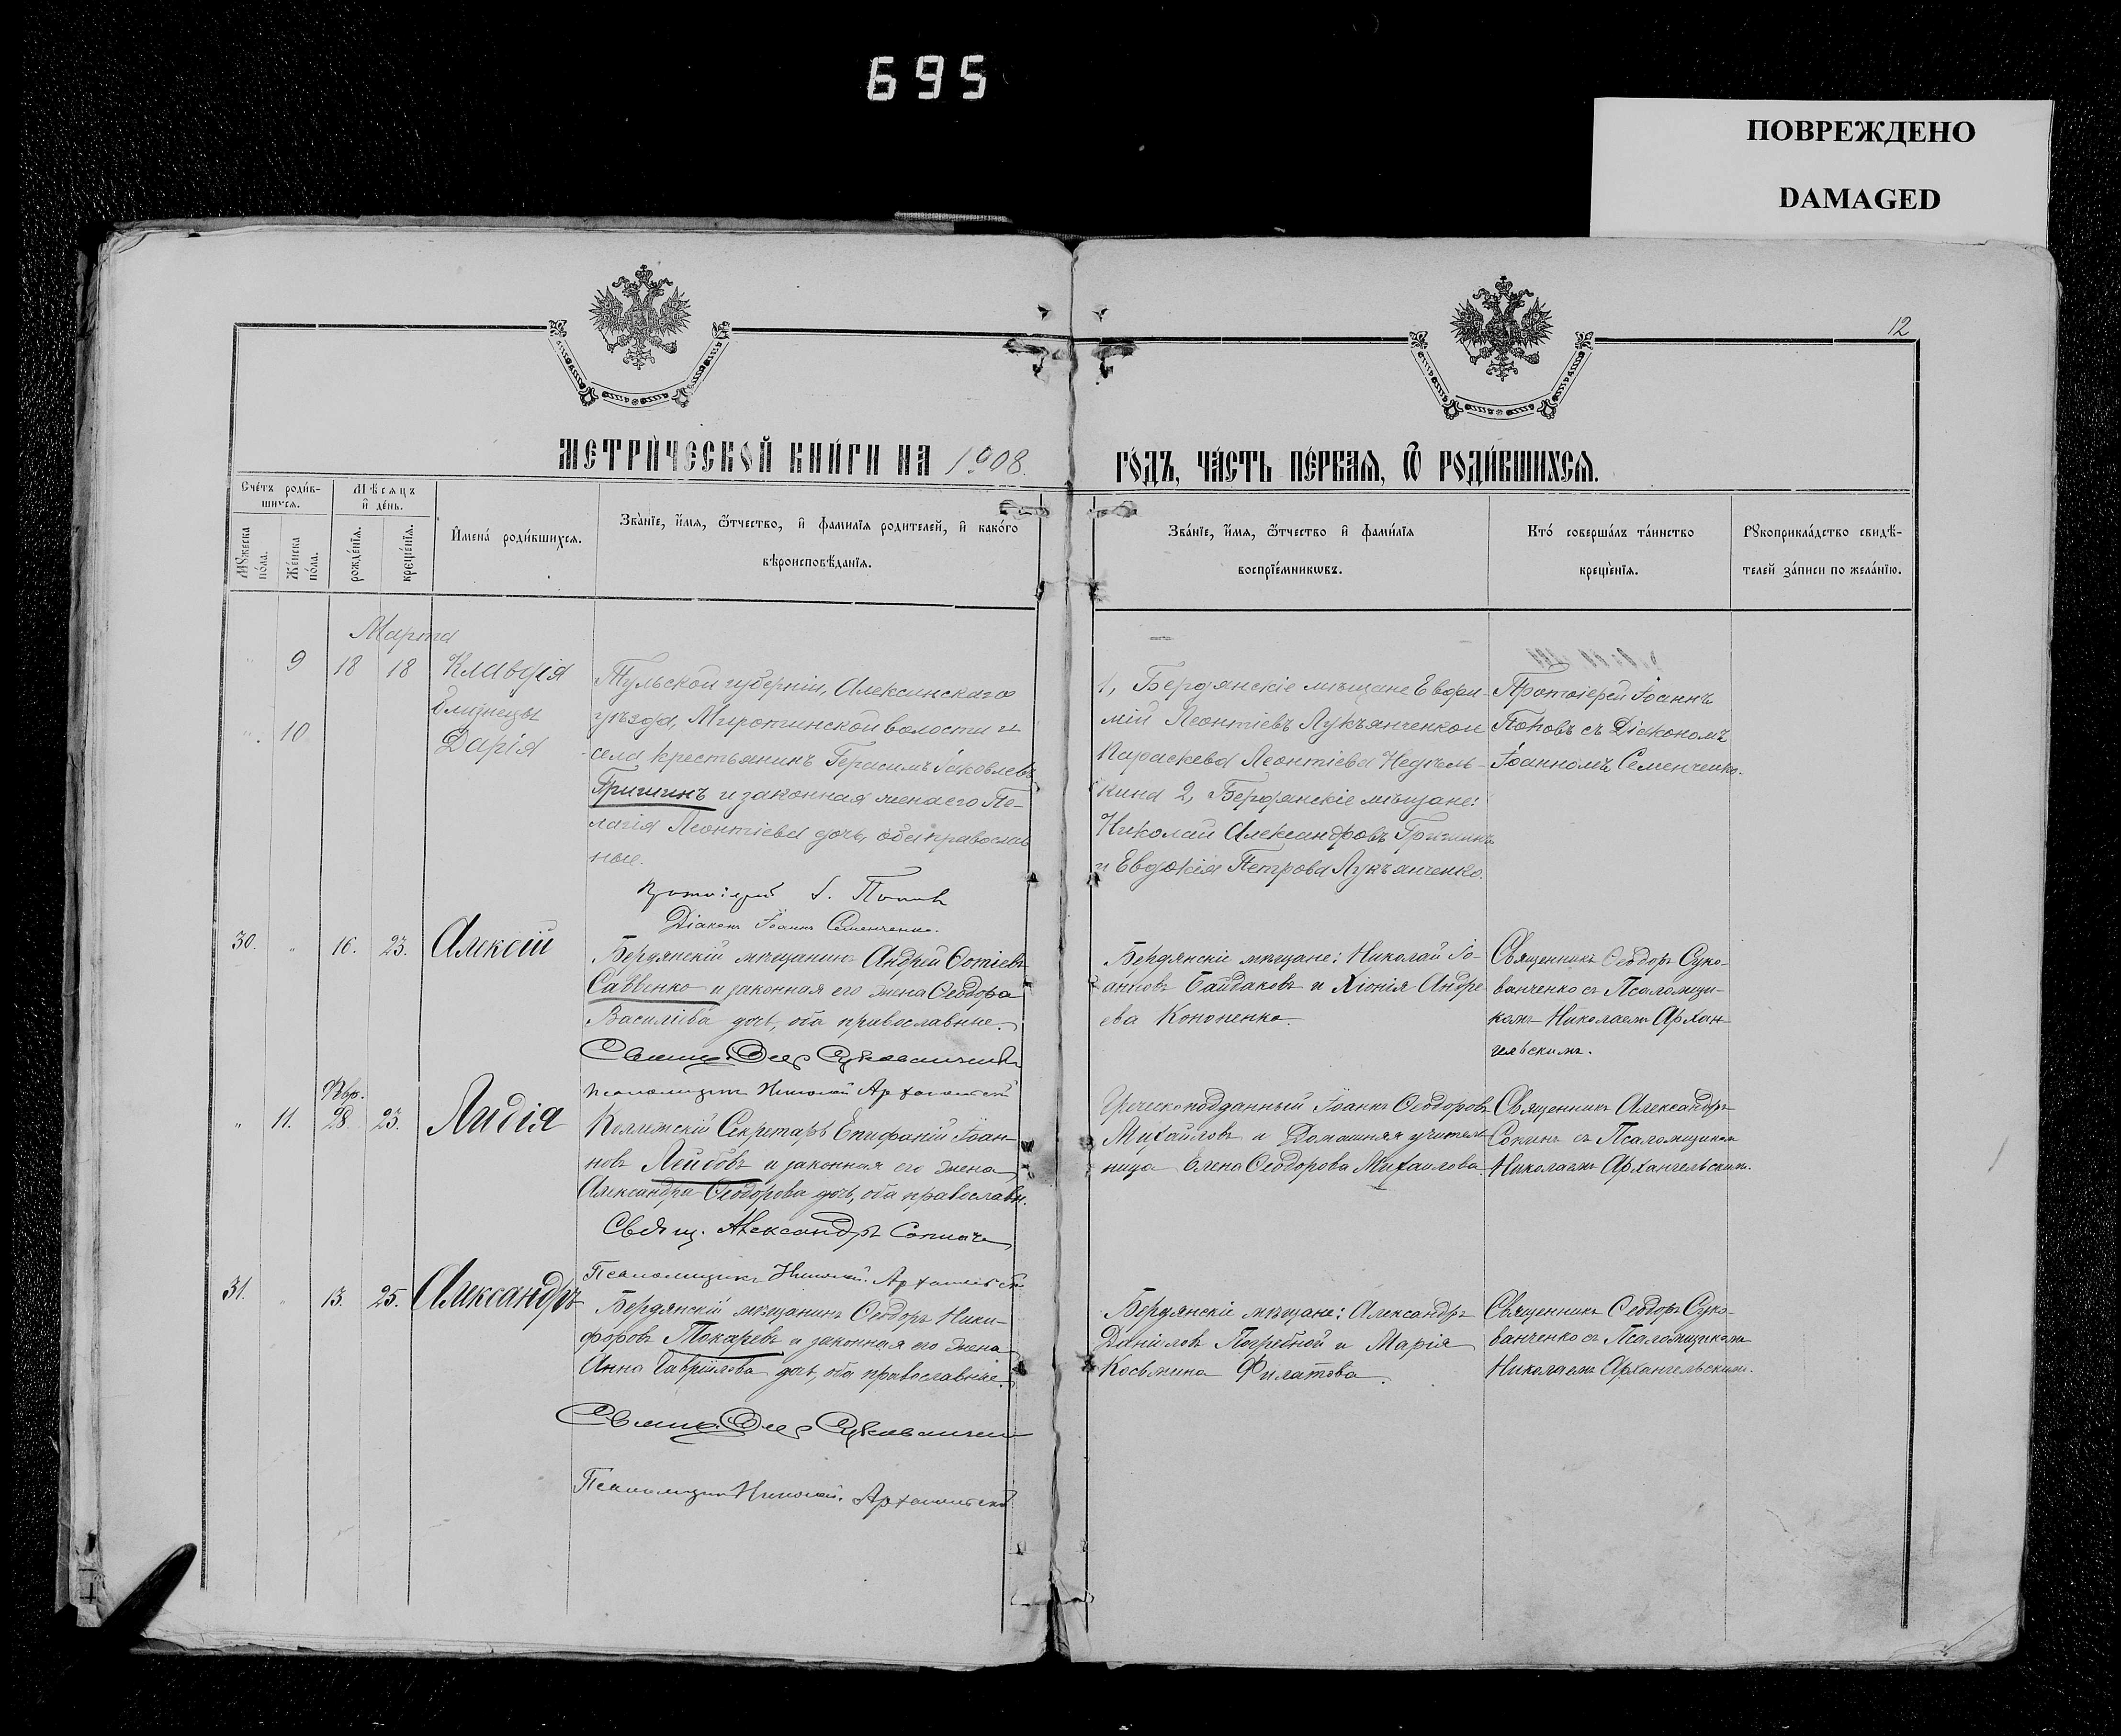 695
ПОВРЕЖДЕНО
DAMAGED
12
МЕТРИ́ЧЕСКОЙ КНИ́ГИ НА 1908.
ГО́ДЪ, ЧА́СТЬ ПЕ́РВАѦ, Ѿ РОДИ́ВШИХСѦ.
Сче́тъ роди́в-
шихсѧ.
Мѣсѧцъ
и҆ де́нь.
Мꙋжеска
по́ла.
Же́нска
по́ла.
рожде́нїѧ.
креще́нїѧ.
И҆мена̀ роди́вшихсѧ.
Зва́нїе, и҆́мѧ, ѻ҆́тчество, и҆ фами́лїѧ родителей, и҆ како́гѡ
вѣроисповѣ́данїѧ.
Зва́нїе, и҆́мѧ, ѻ҆́тчество и҆ фами́лїѧ
воспрїе́мникѡвъ.
Кто́ соверша́лъ та́инство
креще́нїѧ.
Рꙋкоприкла́дство свидѣ́-
телей за́писи по жела́нїю.
Марта
" 9 18 18 Клавдія
близнецы
" 10 Дарія
Тульской губерніи, Алексинскаго
уѣзда, Миротинской волости и
села крестьянинъ Герасимъ Іаковлевъ
Гришинъ и законная жена его Пе-
лагія Леонтіева дочь, оба православ
ные.
Протоіерей І. Поповъ
Діаконъ Іоаннъ Семенченко.
1, Бердянскіе мѣщане Евфи-
мій Леонтіевъ Лукъянченко и
Параскева Леонтіева Недѣль-
кина 2, Бердянскіе мѣщане:
Николай Александровъ Гришинъ
и Евдокія Петрова Лукъянченко.
Протоіерей Іоаннъ
Поповъ съ Діакономъ
Іоанномъ Семенченко.
30. " 16. 23. Алексій
Бердянскій мѣщанинъ Андрей Фотіевъ
Саввенко и законная его жена Ѳеодора
Василіева дочь, оба православные.
Псаломщикъ Николай Архангельскій
Бердянскіе мѣщане: Николай Іо-
анновъ Байдаковъ и Хіонія Андре
ева Кононенко.
Священникъ Ѳеодоръ Суко-
ванченко съ Псаломщи-
комъ Николаемъ Архан-
гельскимъ.
Февр.
" 11. 28. 23. Лидія
Коллежскій Секретарь Епифаній Іоан-
новъ и законная его жена
Александра Ѳеодорова дочь, оба православн.
Свящ. Александръ Сопинъ
Псаломщикъ Николай Архангельскій
Греческоподданный Іоаннъ Ѳеодоровъ
Михайловъ и Домашняя учитель
ница Елена Ѳеодорова Михайлова
Священникъ Александръ
Сопинъ съ Псаломщикомъ
Николаемъ Архангельскимъ.
31. " 13. 25. Александръ
Бердянскій мѣщанинъ Ѳеодоръ Ники-
форовъ Токаревъ и законная его жена
Анна Гавріилова дочь, оба православные.
Псаломщикъ Николай Архангельскій
Бердянскіе мѣщане: Александръ
Даніиловъ Погребной и Марія
Косьмина Филатова.
Священникъ Ѳеодоръ Суко-
ванченко съ Псаломщикомъ
Николаемъ Архангельскимъ.